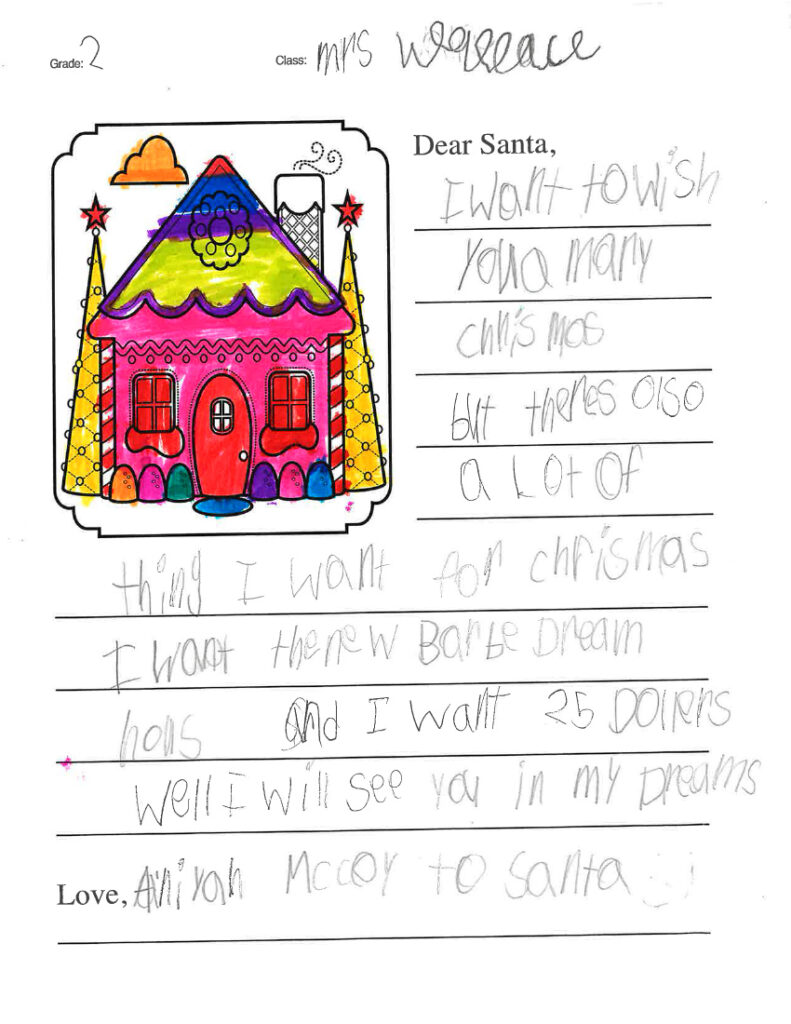 Grade: 2
Class: mrs Wallace
Dear Santa,
I want to wish
you a mary
chrismos
but theres also
a Lot Of
thing I want for chrismas
I want the new Barbe Dream
hous And I want 25 Dollers
well I will see you in my Dreams
Love, Aniyah Mccoy to Santa